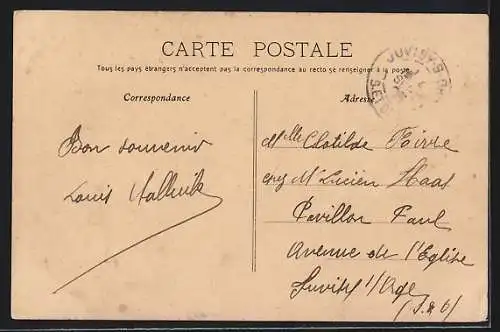 CARTE POSTALE
Tous les pays étrangers n'acceptent pas la correspondance au recto se renseigner à la poste
Correspondance
Adresse
JUVISY-S-
Bon souvenir
Louis
Mlle Clotilde
chez Mr Lucien Haas
Pavillon Paul
Avenue de l'Eglise
Juvisy s/Orge
(S. & O)